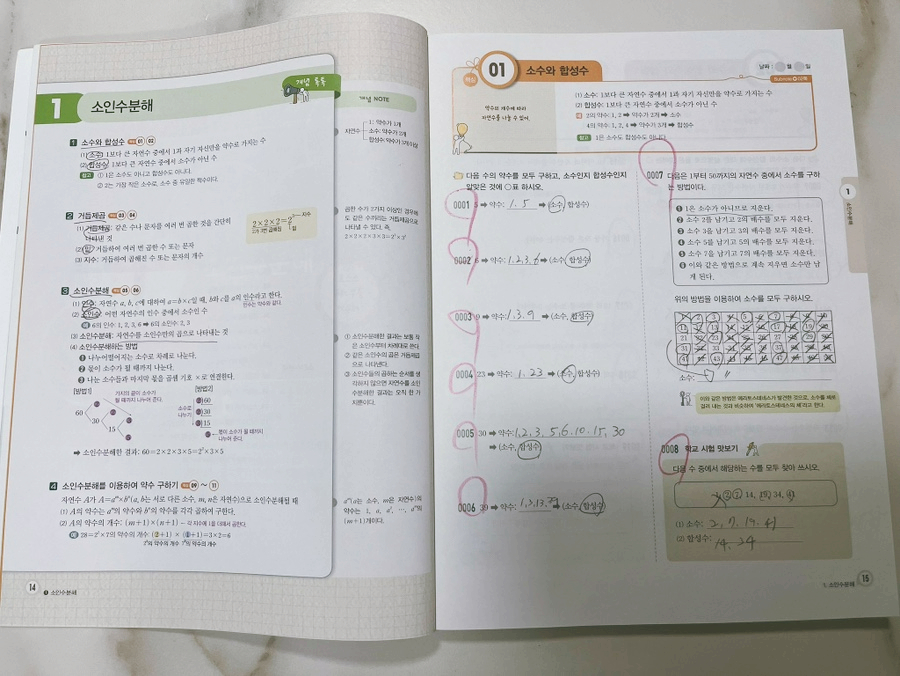 개념 톡톡
1 소인수분해
1 소수와 합성수 01 02
(1) 소수: 1보다 큰 자연수 중에서 1과 자기 자신만을 약수로 가지는 수
(2) 합성수: 1보다 큰 자연수 중에서 소수가 아닌 수
참고 ① 1은 소수도 아니고 합성수도 아니다.
② 2는 가장 작은 소수로, 소수 중 유일한 짝수이다.
2 거듭제곱 03 04
(1) 거듭제곱: 같은 수나 문자를 여러 번 곱한 것을 간단히
나타낸 것
(2) 밑: 거듭하여 여러 번 곱한 수 또는 문자
(3) 지수: 거듭하여 곱해진 수 또는 문자의 개수
2×2×2=2³ 지수
2가 3번 곱해짐 밑
3 소인수분해 05 06
(1) 인수: 자연수 a, b, c에 대하여 a=b×c일 때, b와 c를 a의 인수라고 한다.
(2) 소인수: 어떤 자연수의 인수 중에서 소수인 수
예 6의 인수: 1, 2, 3, 6 ➡ 6의 소인수: 2, 3
(3) 소인수분해: 자연수를 소인수만의 곱으로 나타내는 것
(4) 소인수분해하는 방법
❶ 나누어떨어지는 소수로 차례로 나눈다.
❷ 몫이 소수가 될 때까지 나눈다.
❸ 나눈 소수들과 마지막 몫을 곱셈 기호 ×로 연결한다.
[방법1] [방법2]
가지의 끝이 소수가
될 때까지 나누어 준다.
60
30
15
소수로
나누기
60
30
15
몫이 소수가 될 때까지
나누어 준다.
➡ 소인수분해한 결과: 60=2×2×3×5=2²×3×5
4 소인수분해를 이용하여 약수 구하기 09 ~ 11
자연수 A가 A=aᵐ×bⁿ(a, b는 서로 다른 소수, m, n은 자연수)으로 소인수분해될 때
(1) A의 약수는 aᵐ의 약수와 bⁿ의 약수를 각각 곱하여 구한다.
(2) A의 약수의 개수: (m+1)×(n+1)
예 28=2²×7의 약수의 개수: (2+1)×(1+1)=3×2=6
2²의 약수의 개수 7¹의 약수의 개수
14 1 소인수분해
개념 NOTE
자연수
1: 약수가 1개
소수: 약수가 2개
합성수: 약수가 3개 이상
곱한 수가 2가지 이상인 경우에
도 같은 수끼리는 거듭제곱으로
나타낼 수 있다. 즉,
2×2×2×3×3=2³×3²
① 소인수분해한 결과는 보통 작
은 소인수부터 차례대로 쓴다.
② 같은 소인수의 곱은 거듭제곱
으로 나타낸다.
③ 소인수들의 곱하는 순서를 생
각하지 않으면 자연수를 소인
수분해한 결과는 오직 한 가
지뿐이다.
aᵐ(a는 소수, m은 자연수)의
약수는 1, a, a², …, aᵐ의
(m+1)개이다.
핵심 01 소수와 합성수
날짜 월 일
약수의 개수에 따라
자연수를 나눌 수 있어.
(1) 소수: 1보다 큰 자연수 중에서 1과 자기 자신만을 약수로 가지는 수
(2) 합성수: 1보다 큰 자연수 중에서 소수가 아닌 수
예 2의 약수: 1, 2 ➡ 약수가 2개 ➡ 소수
4의 약수: 1, 2, 4 ➡ 약수가 3개 ➡ 합성수
참고 1은 소수도 합성수도 아니다.
다음 수의 약수를 모두 구하고, 소수인지 합성수인지
알맞은 것에 ○표 하시오.
0001 5 ➡ 약수: 1. 5 ➡ (소수, 합성수)
0002 6 ➡ 약수: 1. 2. 3. 6 ➡ (소수, 합성수)
0003 9 ➡ 약수: 1. 3. 9 ➡ (소수, 합성수)
0004 23 ➡ 약수: 1. 23 ➡ (소수, 합성수)
0005 30 ➡ 약수: 1, 2, 3, 5, 6. 10. 15, 30
➡ (소수, 합성수)
0006 39 ➡ 약수: 1, 3, 13, 39 ➡ (소수, 합성수)
0007 다음은 1부터 50까지의 자연수 중에서 소수를 구하
는 방법이다.
❶ 1은 소수가 아니므로 지운다.
❷ 소수 2를 남기고 2의 배수를 모두 지운다.
❸ 소수 3을 남기고 3의 배수를 모두 지운다.
❹ 소수 5를 남기고 5의 배수를 모두 지운다.
❺ 소수 7을 남기고 7의 배수를 모두 지운다.
❻ 이와 같은 방법으로 계속 지우면 소수만 남
게 된다.
위의 방법을 이용하여 소수를 모두 구하시오.
소수:
이와 같은 방법은 에라토스테네스가 발견한 것으로, 소수를 체로
걸러 내는 것과 비슷하여 '에라토스테네스의 체'라고 한다.
0008 학교 시험 맛보기
다음 수 중에서 해당하는 수를 모두 찾아 쓰시오.
1, 2, 7, 14, 19, 34, 41
(1) 소수: 2, 7. 19. 41
(2) 합성수: 14. 34
1
소인수분해
1. 소인수분해 15